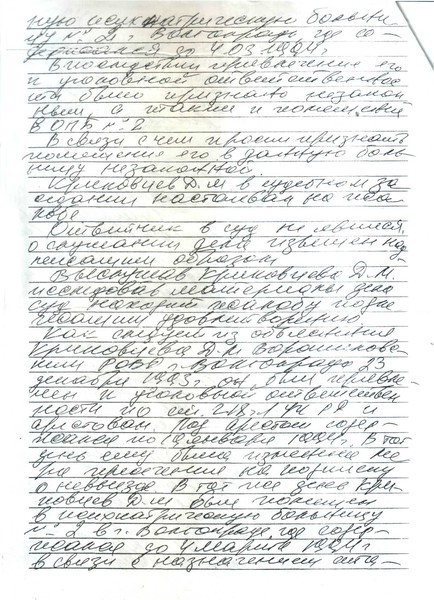 ную психиатрическую больни-
цу № 2 г. Волгограда, где со-
держался до 4.03.1994г.
Впоследствии привлечение его
к уголовной ответственнос
ти было признано незакон
ным, а также и помещение
в ОПБ № 2
В связи с чем просит признать
помещение его в данную боль
ницу незаконной.
Криковцев Д.М в судебном за
седании настаивал на жа
лобе
Ответчик в суд не явился,
о слушании дела извещен над
лежащим образом
Выслушав Криковцева Д.М.
исследовав материалы дела
суд находит жалобу подле
жащую удовлетворению
Как следует из объяснения
Криковцева Д.М Ворошиловс
ким РОВД г. Волгограда 23
декабря 1993г. он был привле
чен к уголовной ответствен
ности по ст. 218 ч.1 УК РФ и
арестован. Под арестом содер-
жался по января 1994г. В тот
день ему была изменена ме
ра пресечения на подписку
о невыезде. В тот же день Кри-
ковцев Д.М был помещен
в психиатрическую больницу
№ 2 в г. Волгограде, где содер-
жался до 4 марта 1994г
в связи с назначением ста-